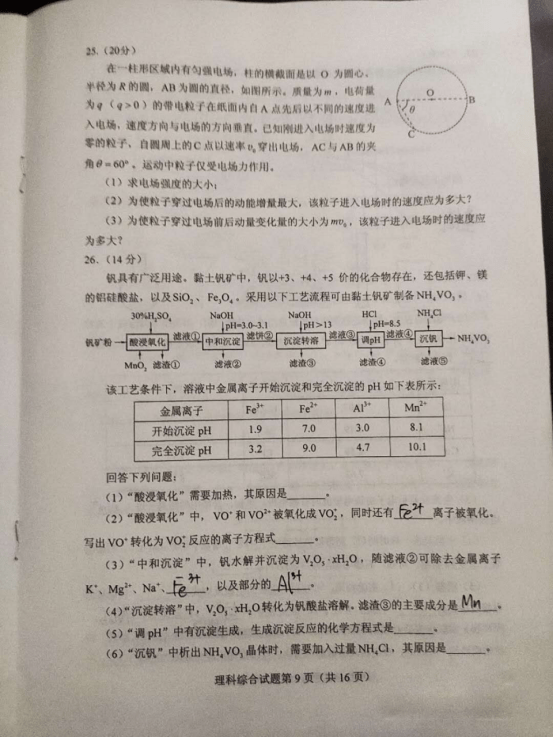 25.（20分）
在一柱形区域内有匀强电场，柱的横截面是以 O 为圆心，
半径为 R 的圆，AB 为圆的直径，如图所示。质量为 m，电荷量
为 q（q>0）的带电粒子在纸面内自 A 点先后以不同的速度进
入电场，速度方向与电场的方向垂直。已知刚进入电场时速度为
零的粒子，自圆周上的 C 点以速率 v₀ 穿出电场，AC 与 AB 的夹
角 θ = 60°。运动中粒子仅受电场力作用。
A
O
B
θ
C
（1）求电场强度的大小；
（2）为使粒子穿过电场后的动能增量最大，该粒子进入电场时的速度应为多大？
（3）为使粒子穿过电场前后动量变化量的大小为 mv₀，该粒子进入电场时的速度应
为多大？
26.（14 分）
钒具有广泛用途。黏土钒矿中，钒以+3、+4、+5 价的化合物存在，还包括钾、镁
的铝硅酸盐，以及 SiO₂、Fe₃O₄。采用以下工艺流程可由黏土钒矿制备 NH₄VO₃。
30%H₂SO₄ NaOH NaOH HCl NH₄Cl
pH=3.0~3.1 pH>13 pH=8.5
钒矿粉 酸浸氧化 滤液① 中和沉淀 滤饼② 沉淀转溶 滤液③ 调pH 滤液④ 沉钒 NH₄VO₃
MnO₂ 滤渣① 滤液② 滤渣③ 滤渣④ 滤液⑤
该工艺条件下，溶液中金属离子开始沉淀和完全沉淀的 pH 如下表所示：
金属离子 Fe³⁺ Fe²⁺ Al³⁺ Mn²⁺
开始沉淀 pH 1.9 7.0 3.0 8.1
完全沉淀 pH 3.2 9.0 4.7 10.1
回答下列问题：
（1）“酸浸氧化”需要加热，其原因是______。
（2）“酸浸氧化”中，VO⁺ 和 VO²⁺ 被氧化成 VO₂⁺，同时还有 Fe²⁺ 离子被氧化。
写出 VO⁺ 转化为 VO₂⁺ 反应的离子方程式______。
（3）“中和沉淀”中，钒水解并沉淀为 V₂O₅·xH₂O，随滤液②可除去金属离子
K⁺、Mg²⁺、Na⁺、Fe³⁺，以及部分的 Al³⁺。
（4）“沉淀转溶”中，V₂O₅·xH₂O 转化为钒酸盐溶解。滤渣③的主要成分是 Mn。
（5）“调 pH”中有沉淀生成，生成沉淀反应的化学方程式是______。
（6）“沉钒”中析出 NH₄VO₃ 晶体时，需要加入过量 NH₄Cl，其原因是______。
理科综合试题第 9 页（共 16 页）